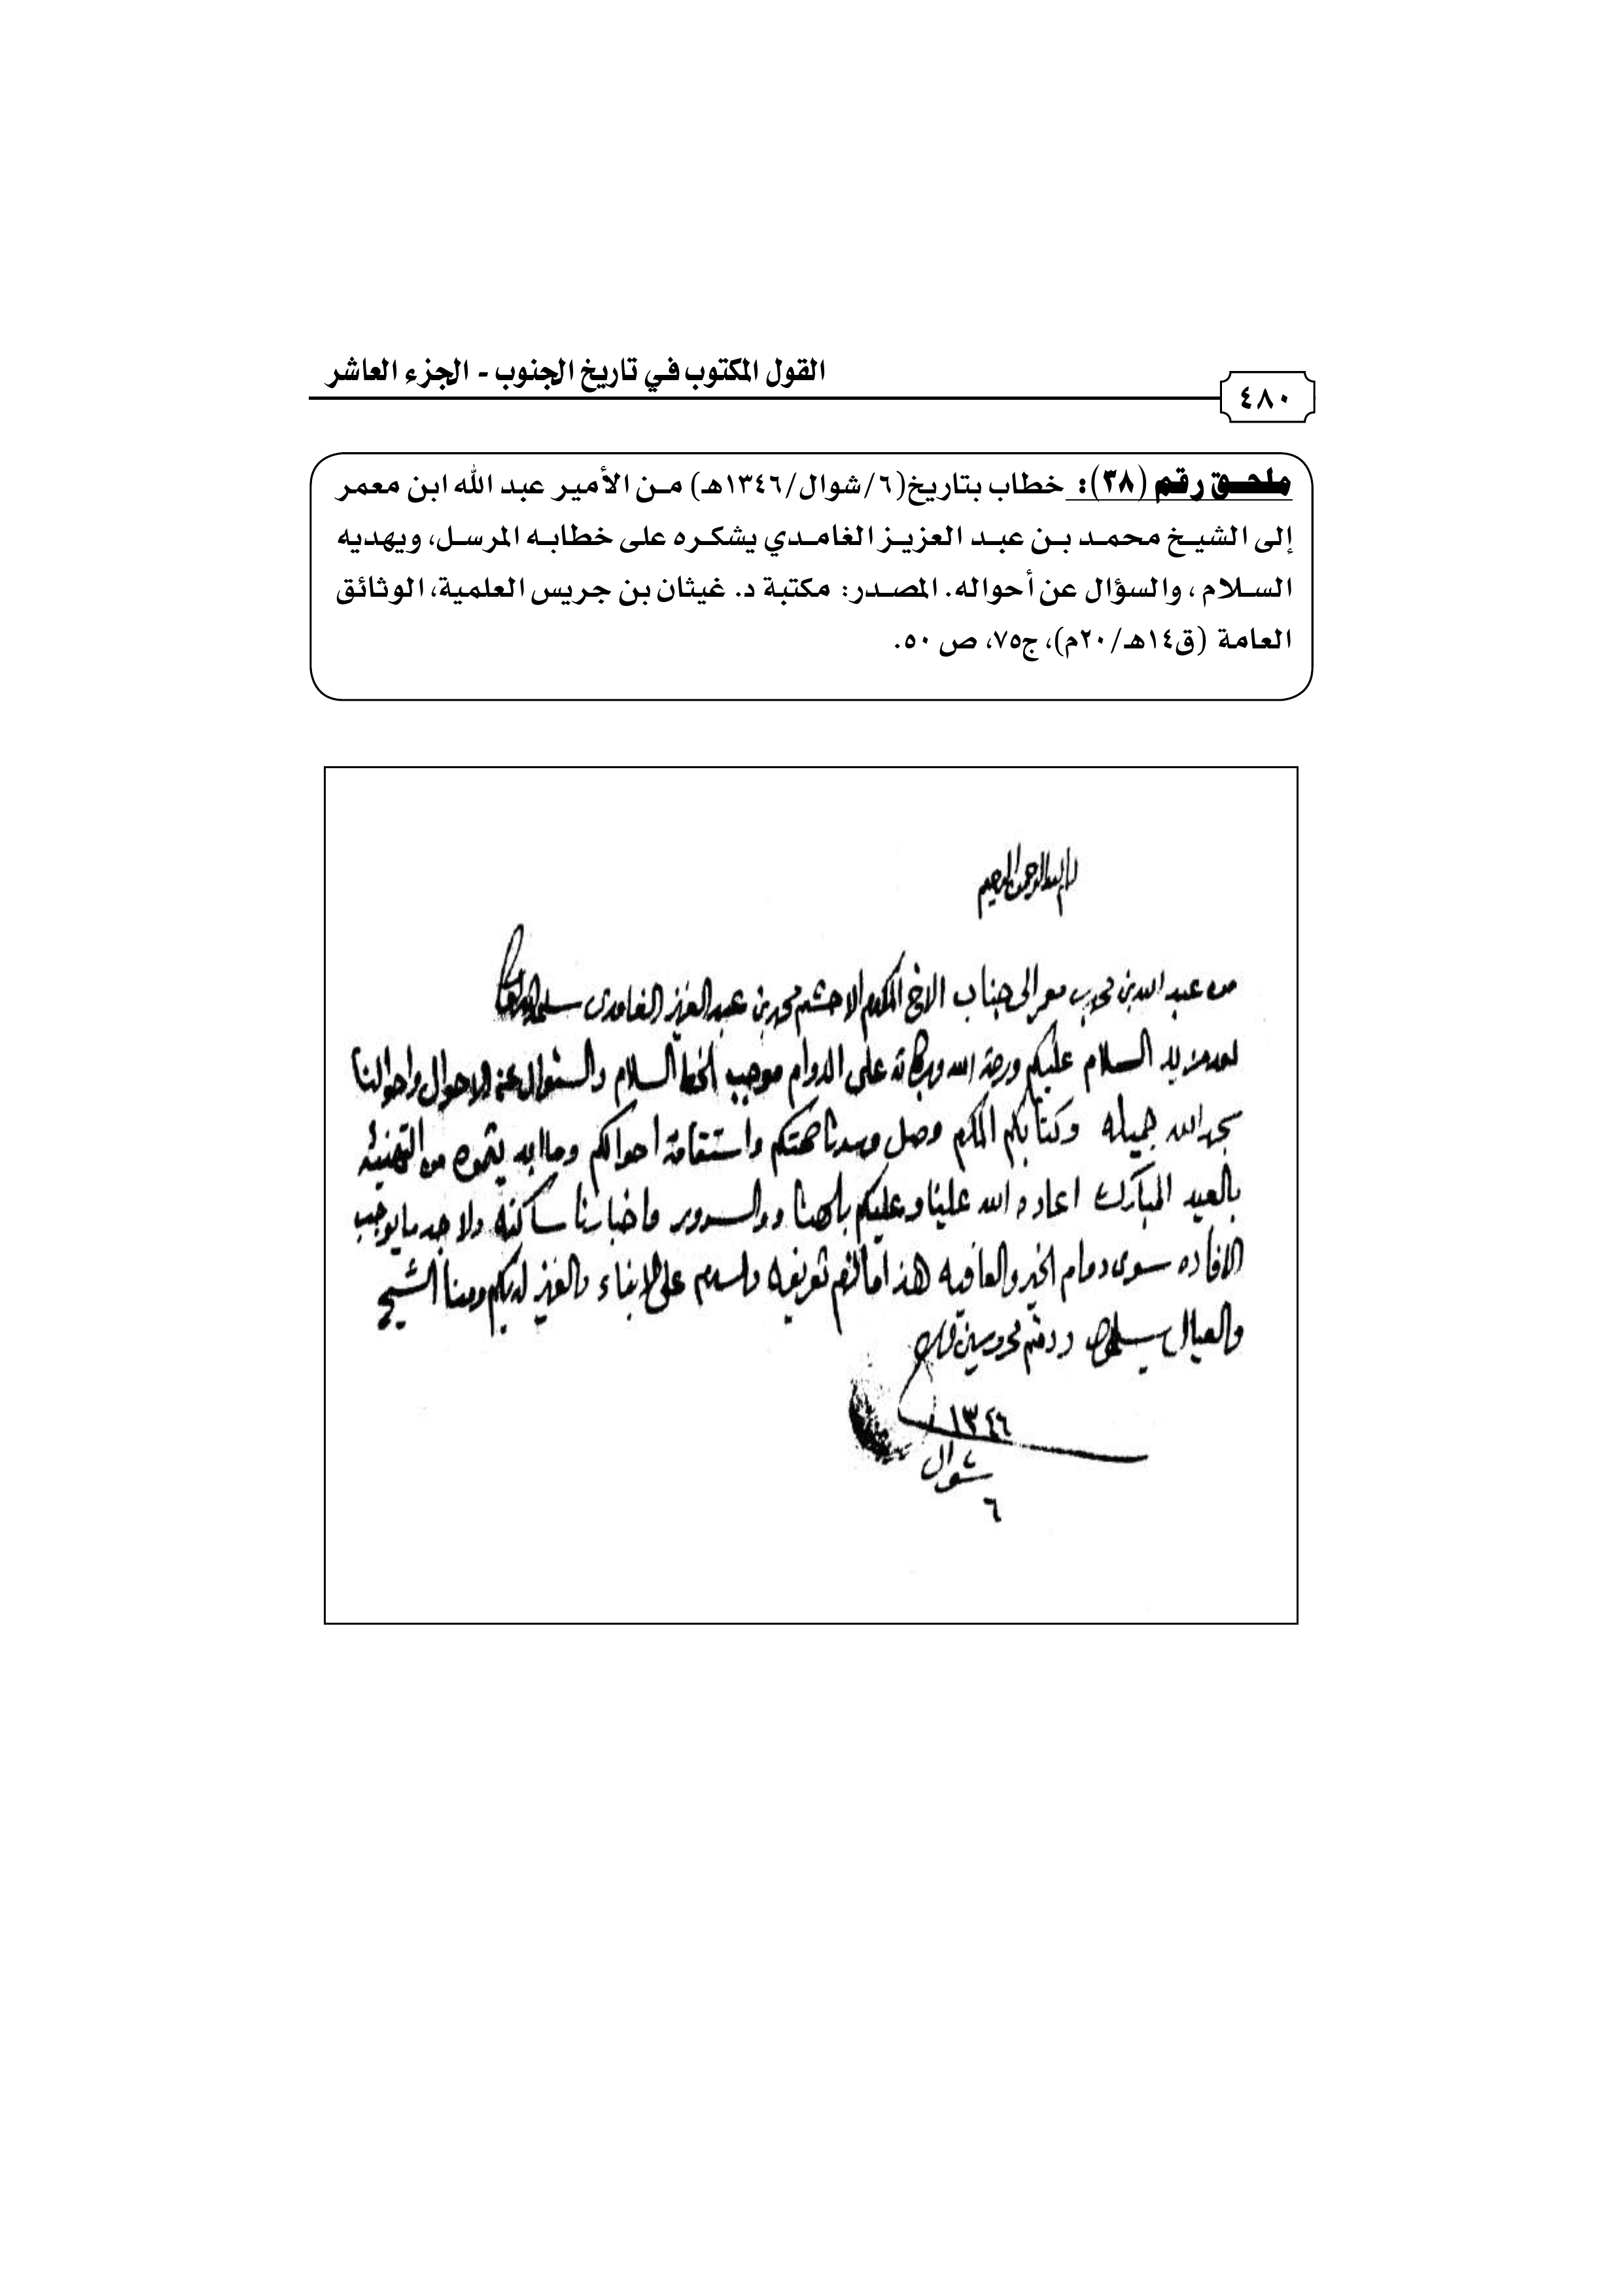 القول المكتوب في تاريخ الجنوب - الجزء العاشر
٤٨٠
ملحق رقم (٣٨): خطاب بتاريخ(٦/شوال/١٣٤٦هـ) من الأمير عبد الله ابن معمر
إلى الشيخ محمد بن عبد العزيز الغامدي يشكره على خطابه المرسل، ويهديه
السلام ، والسؤال عن أحواله. المصدر: مكتبة د. غيثان بن جريس العلمية، الوثائق
العامة (ق١٤هـ/٢٠م)، ج٧٥، ص ٥٠.
بسم الله الرحمن الرحيم
من عبد الله بن معمر الى جناب الاخ المكرم الاحشم محمد بن عبد العزيز الغامدى سلمه الله تعالى
بعد مزيد السلام عليكم ورحمة الله وبركاته على الدوام موجب الخط السلام والسئوال عن الاحوال واحوالنا
بحمد الله جميله وكتابكم المكرم وصل وسرنا صحتكم واستقامة احوالكم وما ابديتموه من التهنئه
بالعيد المبارك اعاده الله علينا وعليكم بالهنا والسرور واخبارنا ساكنه ولا جد ما يوجب
الافاده سوى دوام الخير والعافيه هذا ما لزم تعريفه والسلام على الابناء والعزيز لديكم ومنا الشيخ
والعيال يسلمون ودمتم محروسين
١٣٤٦
شوال
٦